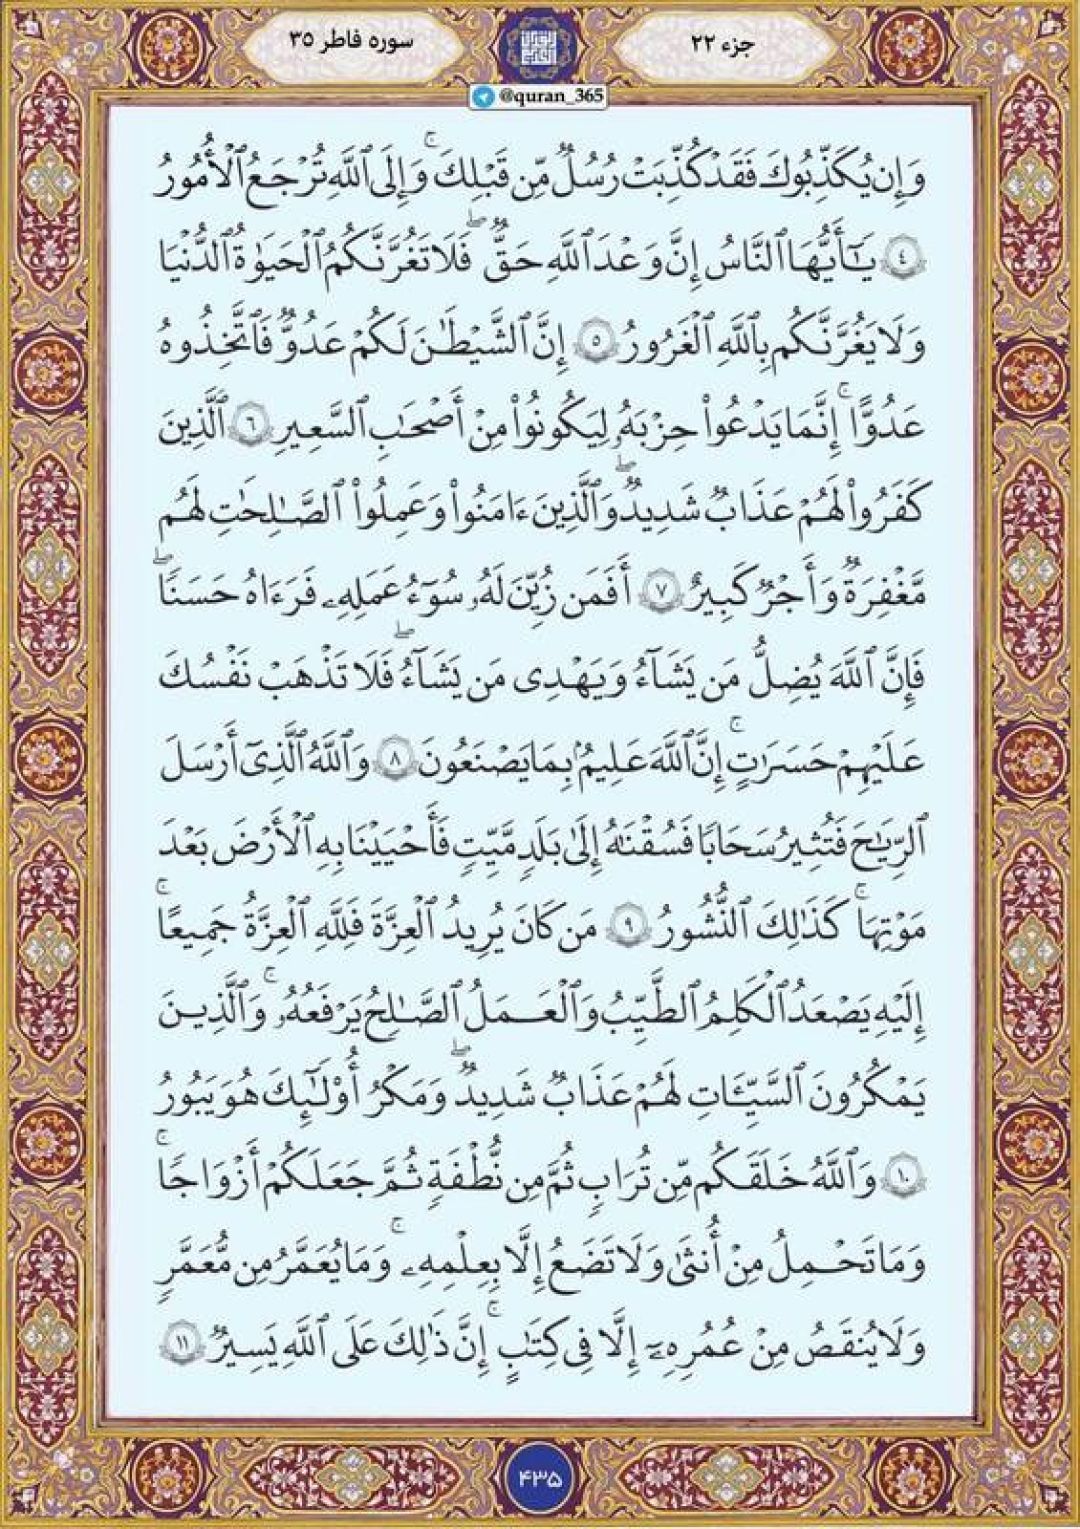 جزء ۲۲
سوره فاطر ۳۵
@quran_365
وَإِن يُكَذِّبُوكَ فَقَدْ كُذِّبَتْ رُسُلٌ مِّن قَبْلِكَ ۚ وَإِلَى ٱللَّهِ تُرْجَعُ ٱلْأُمُورُ
﴿٤﴾ يَـٰٓأَيُّهَا ٱلنَّاسُ إِنَّ وَعْدَ ٱللَّهِ حَقٌّ ۖ فَلَا تَغُرَّنَّكُمُ ٱلْحَيَوٰةُ ٱلدُّنْيَا
وَلَا يَغُرَّنَّكُم بِٱللَّهِ ٱلْغَرُورُ ﴿٥﴾ إِنَّ ٱلشَّيْطَـٰنَ لَكُمْ عَدُوٌّ فَٱتَّخِذُوهُ
عَدُوًّا ۚ إِنَّمَا يَدْعُوا۟ حِزْبَهُۥ لِيَكُونُوا۟ مِنْ أَصْحَـٰبِ ٱلسَّعِيرِ ﴿٦﴾ ٱلَّذِينَ
كَفَرُوا۟ لَهُمْ عَذَابٌ شَدِيدٌ ۖ وَٱلَّذِينَ ءَامَنُوا۟ وَعَمِلُوا۟ ٱلصَّـٰلِحَـٰتِ لَهُم
مَّغْفِرَةٌ وَأَجْرٌ كَبِيرٌ ﴿٧﴾ أَفَمَن زُيِّنَ لَهُۥ سُوٓءُ عَمَلِهِۦ فَرَءَاهُ حَسَنًا ۖ
فَإِنَّ ٱللَّهَ يُضِلُّ مَن يَشَآءُ وَيَهْدِى مَن يَشَآءُ ۖ فَلَا تَذْهَبْ نَفْسُكَ
عَلَيْهِمْ حَسَرَٰتٍ ۚ إِنَّ ٱللَّهَ عَلِيمٌۢ بِمَا يَصْنَعُونَ ﴿٨﴾ وَٱللَّهُ ٱلَّذِىٓ أَرْسَلَ
ٱلرِّيَـٰحَ فَتُثِيرُ سَحَابًا فَسُقْنَـٰهُ إِلَىٰ بَلَدٍ مَّيِّتٍ فَأَحْيَيْنَا بِهِ ٱلْأَرْضَ بَعْدَ
مَوْتِهَا ۚ كَذَٰلِكَ ٱلنُّشُورُ ﴿٩﴾ مَن كَانَ يُرِيدُ ٱلْعِزَّةَ فَلِلَّهِ ٱلْعِزَّةُ جَمِيعًا ۚ
إِلَيْهِ يَصْعَدُ ٱلْكَلِمُ ٱلطَّيِّبُ وَٱلْعَمَلُ ٱلصَّـٰلِحُ يَرْفَعُهُۥ ۚ وَٱلَّذِينَ
يَمْكُرُونَ ٱلسَّيِّـَٔاتِ لَهُمْ عَذَابٌ شَدِيدٌ ۖ وَمَكْرُ أُو۟لَـٰٓئِكَ هُوَ يَبُورُ
﴿١٠﴾ وَٱللَّهُ خَلَقَكُم مِّن تُرَابٍ ثُمَّ مِن نُّطْفَةٍ ثُمَّ جَعَلَكُمْ أَزْوَٰجًا ۚ
وَمَا تَحْمِلُ مِنْ أُنثَىٰ وَلَا تَضَعُ إِلَّا بِعِلْمِهِۦ ۚ وَمَا يُعَمَّرُ مِن مُّعَمَّرٍ
وَلَا يُنقَصُ مِنْ عُمُرِهِۦٓ إِلَّا فِى كِتَـٰبٍ ۚ إِنَّ ذَٰلِكَ عَلَى ٱللَّهِ يَسِيرٌ ﴿١١﴾
۴۳۵